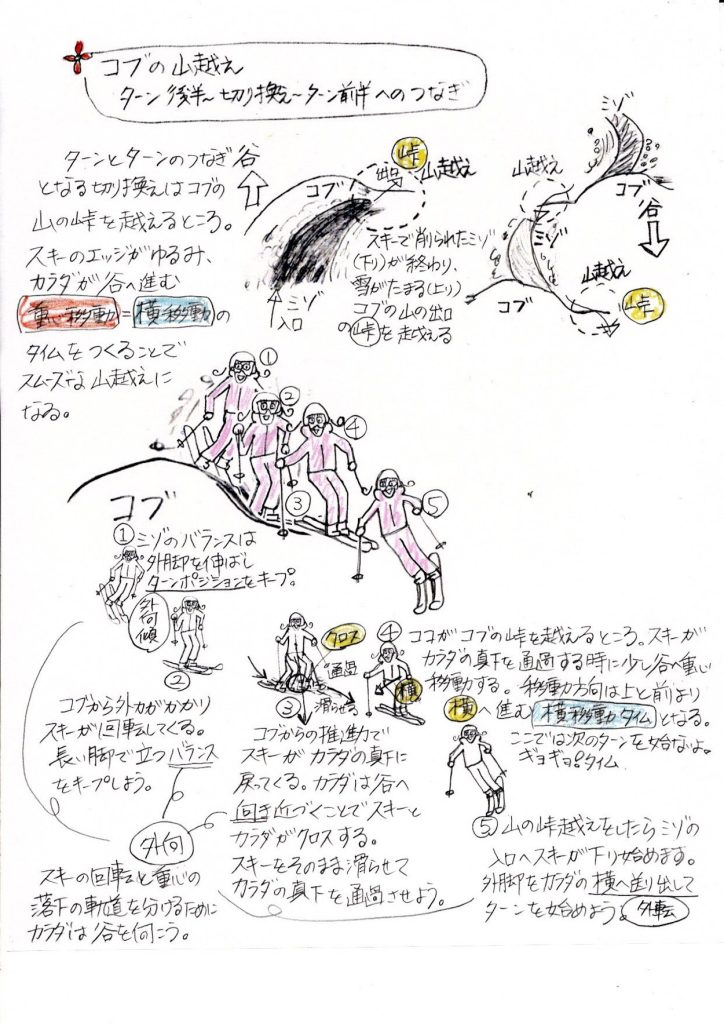 コブの山越え
ターン後半〜切り換え〜ターン前半へのつなぎ
ターンとターンのつなぎ谷
となる切り換えはコブの
山の峠を越えるところ。
スキーのエッジがゆるみ、
カラダが谷へ進む
重心移動=横移動の
タイムをつくることで
スムーズな山越えに
なる。
コブ
出口
峠
山越え
ミゾ
入口
スキーで削られたミゾ
(下り)が終わり、
雪がたまる(上り)
コブの山の出口
の峠を越える
ミゾ
山越え
コブ
谷
ミゾ
山越え
コブ
峠
①
②
④
③
⑤
コブ
①ミゾのバランスは
外脚を伸ばし
ターンポジションをキープ。
外向傾
②
コブから外力がかかり
スキーが回転してくる。
長い脚で立つバランス
をキープしよう。
外向
スキーの回転と重心の
落下の軌道を分けるために
カラダは谷を向こう。
クロス
通過
滑らせる
③
コブからの推進力で
スキーがカラダの真下に
戻ってくる。カラダは谷へ
向き近づくことでスキーと
カラダがクロスする。
スキーをそのまま滑らせて
カラダの真下を通過させよう。
④ココがコブの峠を越えるところ。スキーが
カラダの真下を通過する時に少し谷へ重心
移動する。移動方向は上と前より
横へ進む横移動タイムとなる。
ここでは次のターンを始ないよ。
ギョギョ!タイム
横
⑤山の峠越えをしたらミゾの
入口へスキーが下り始めます。
外脚をカラダの横へ送り出して
ターンを始めよう。外転